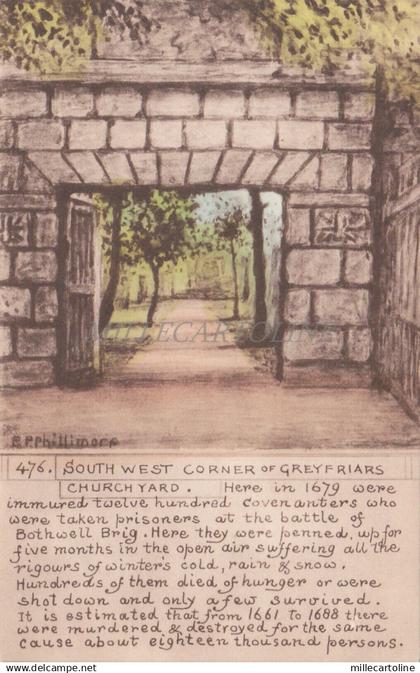 MILLECARTOLINE
R.P.Phillimore
476. SOUTH WEST CORNER OF GREYFRIARS
CHURCHYARD. Here in 1679 were
immured twelve hundred covenanters who
were taken prisoners at the battle of
Bothwell Brig. Here they were penned, up for
five months in the open air suffering all the
rigours of winter's cold, rain & snow.
Hundreds of them died of hunger or were
shot down and only a few survived.
It is estimated that from 1661 to 1688 there
were murdered & destroyed for the same
cause about eighteen thousand persons.
delcampe.net millecartoline